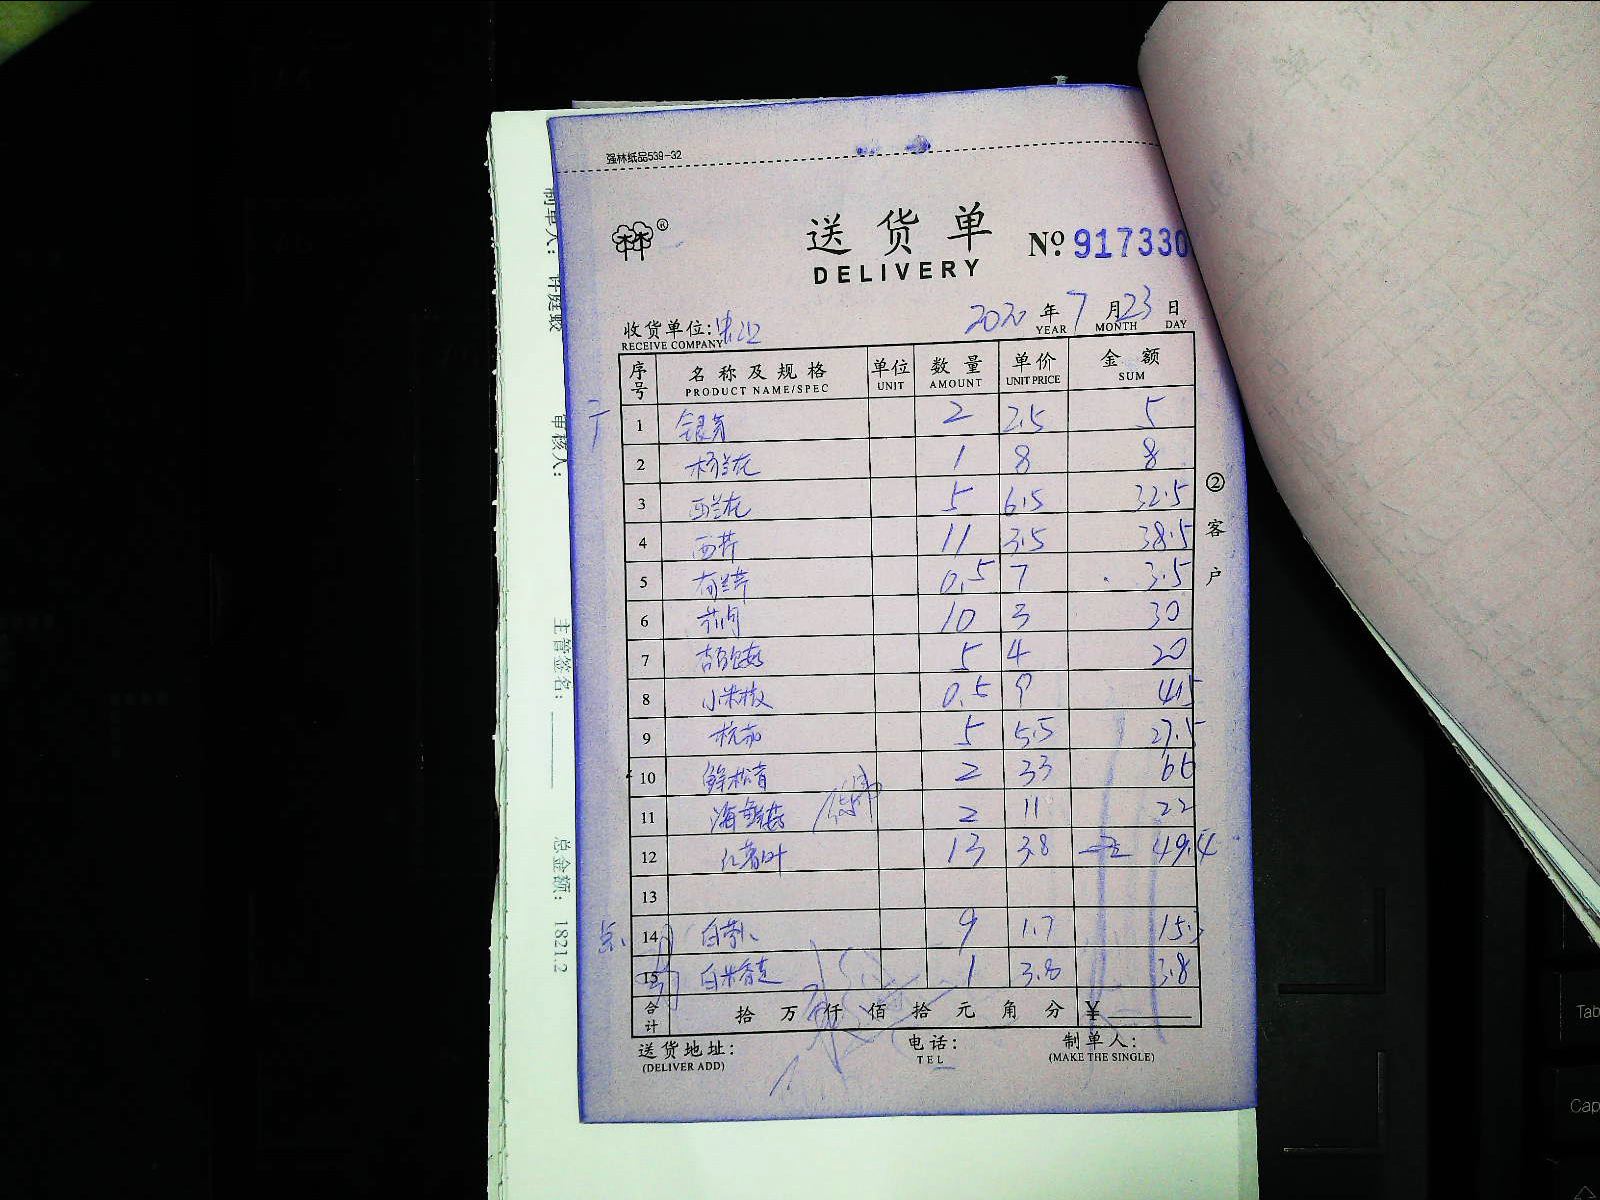 强林纸品539-32
送货单
DELIVERY
№ 917330
2020 年 7 月 23 日
YEAR MONTH DAY
收货单位:
RECEIVE COMPANY
序号 名称及规格 单位 数量 单价 金额
PRODUCT NAME/SPEC UNIT AMOUNT UNIT PRICE SUM
1 银芽 2 2.5 5
2 杨兰花 1 8 8
3 西兰花 5 6.5 32.5
4 西芹 11 3.5 38.5
5 0.5 7 3.5
6 10 3 30
7 5 4 20
8 小米椒 0.5 9 4.5
9 杭茄 5 5.5 27.5
10 鲜松茸 2 33 66
11 海鲜菇 2 11 22
12 红薯叶 13 3.8 49.4
13
14 9 1.7 15.3
15 白米香芝 1 3.8 3.8
合计 拾 万 仟 佰 拾 元 角 分 ¥
送货地址: 电话: 制单人:
(DELIVER ADD) TEL (MAKE THE SINGLE)
② 客户
制单人: 许庭毅
审核人:
主管签名:
总金额: 1821.2
Tab
Cap